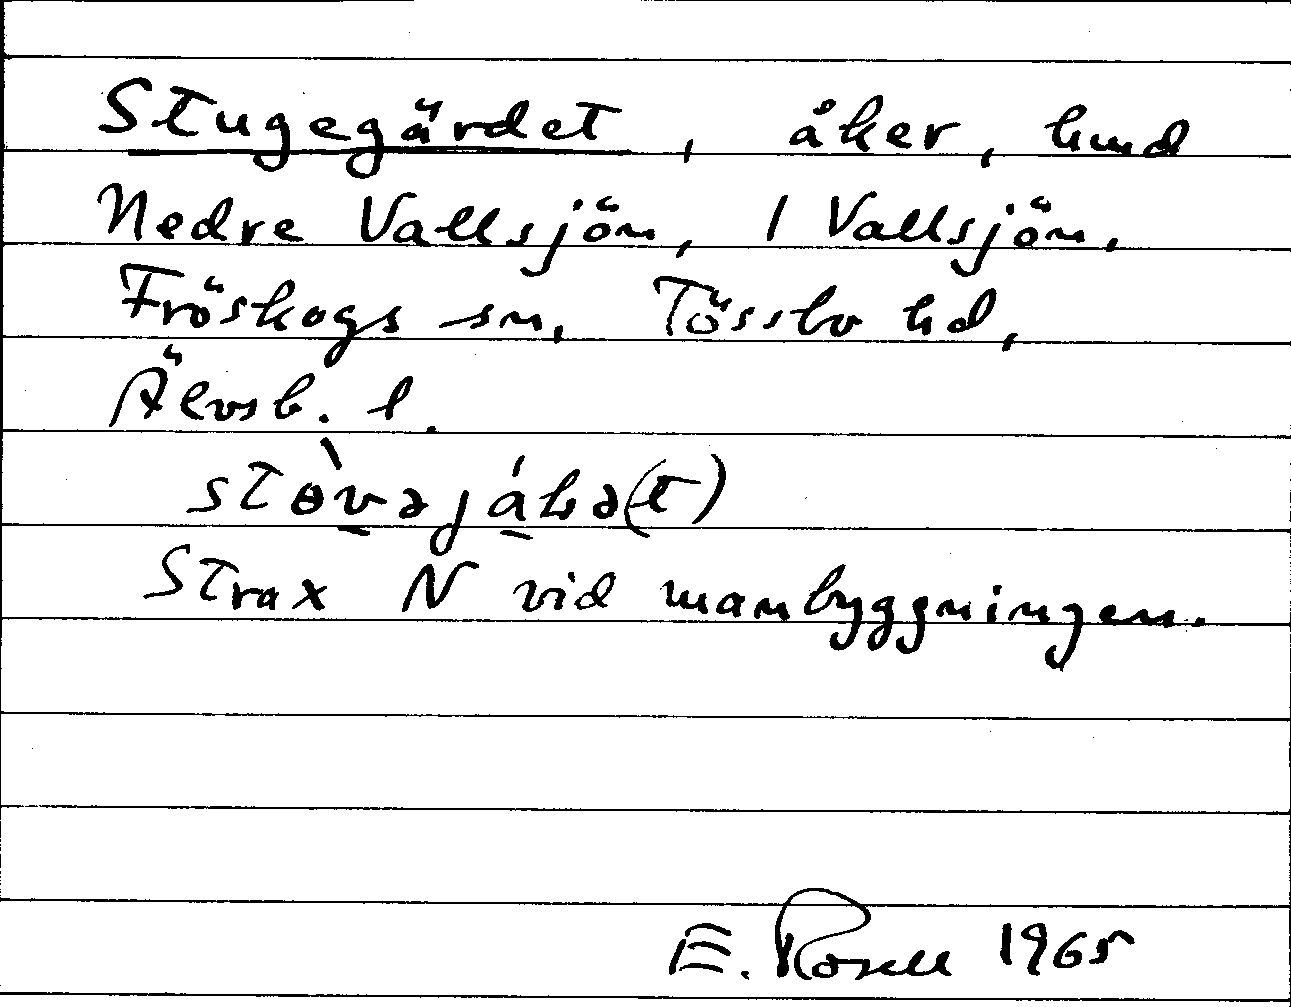 Stugegärdet, åker, hmd
Nedre Vallsjön, 1 Vallsjön,
Fröskogs sn, Tössbo hd,
Älvsb. l.
Strax N vid manbyggningen.
E. Rosell 1965